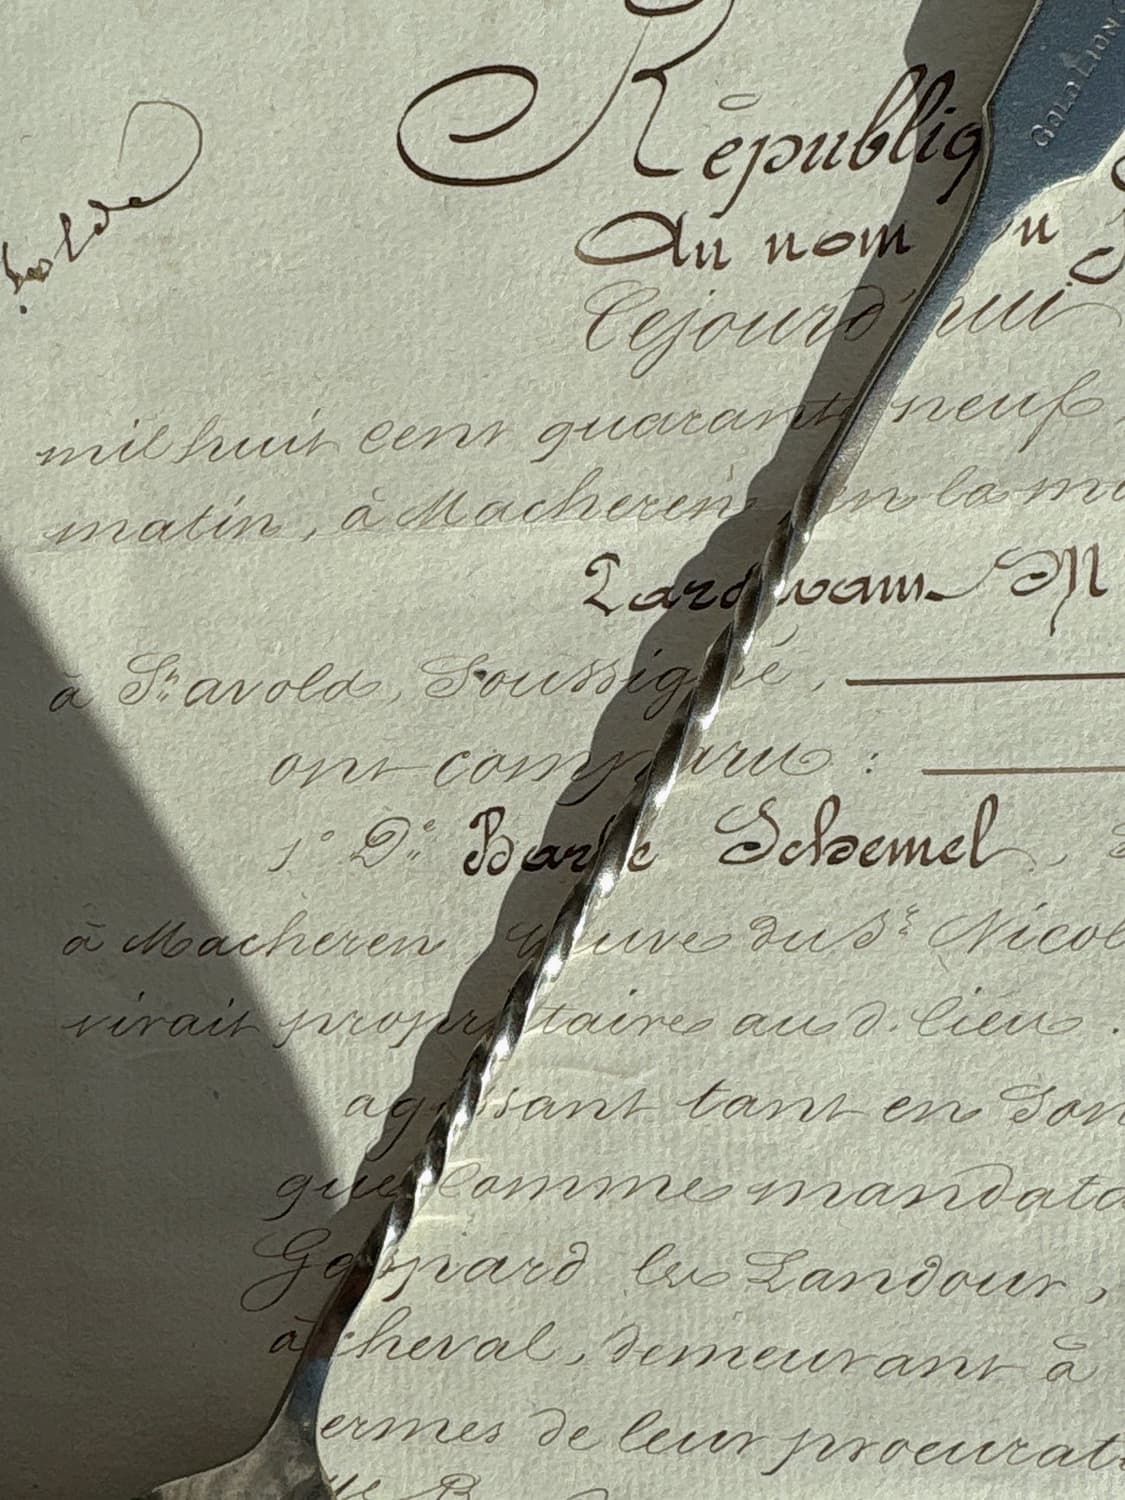 GOLD LION
Républiq
Au nom du
Cejourd'hui
mil huit cent quarante neuf
matin, à Macheren, en la
à St. avold, Soussigné,
ont comparu :
1° De. Barbe Schemel,
à Macheren, veuve du Sr. Nicol
vivait propriétaire au d. lieu.
agissant tant en Son
que comme mandata
Gaspard les Landour,
à cheval, demeurant à
ermes de leur procurat